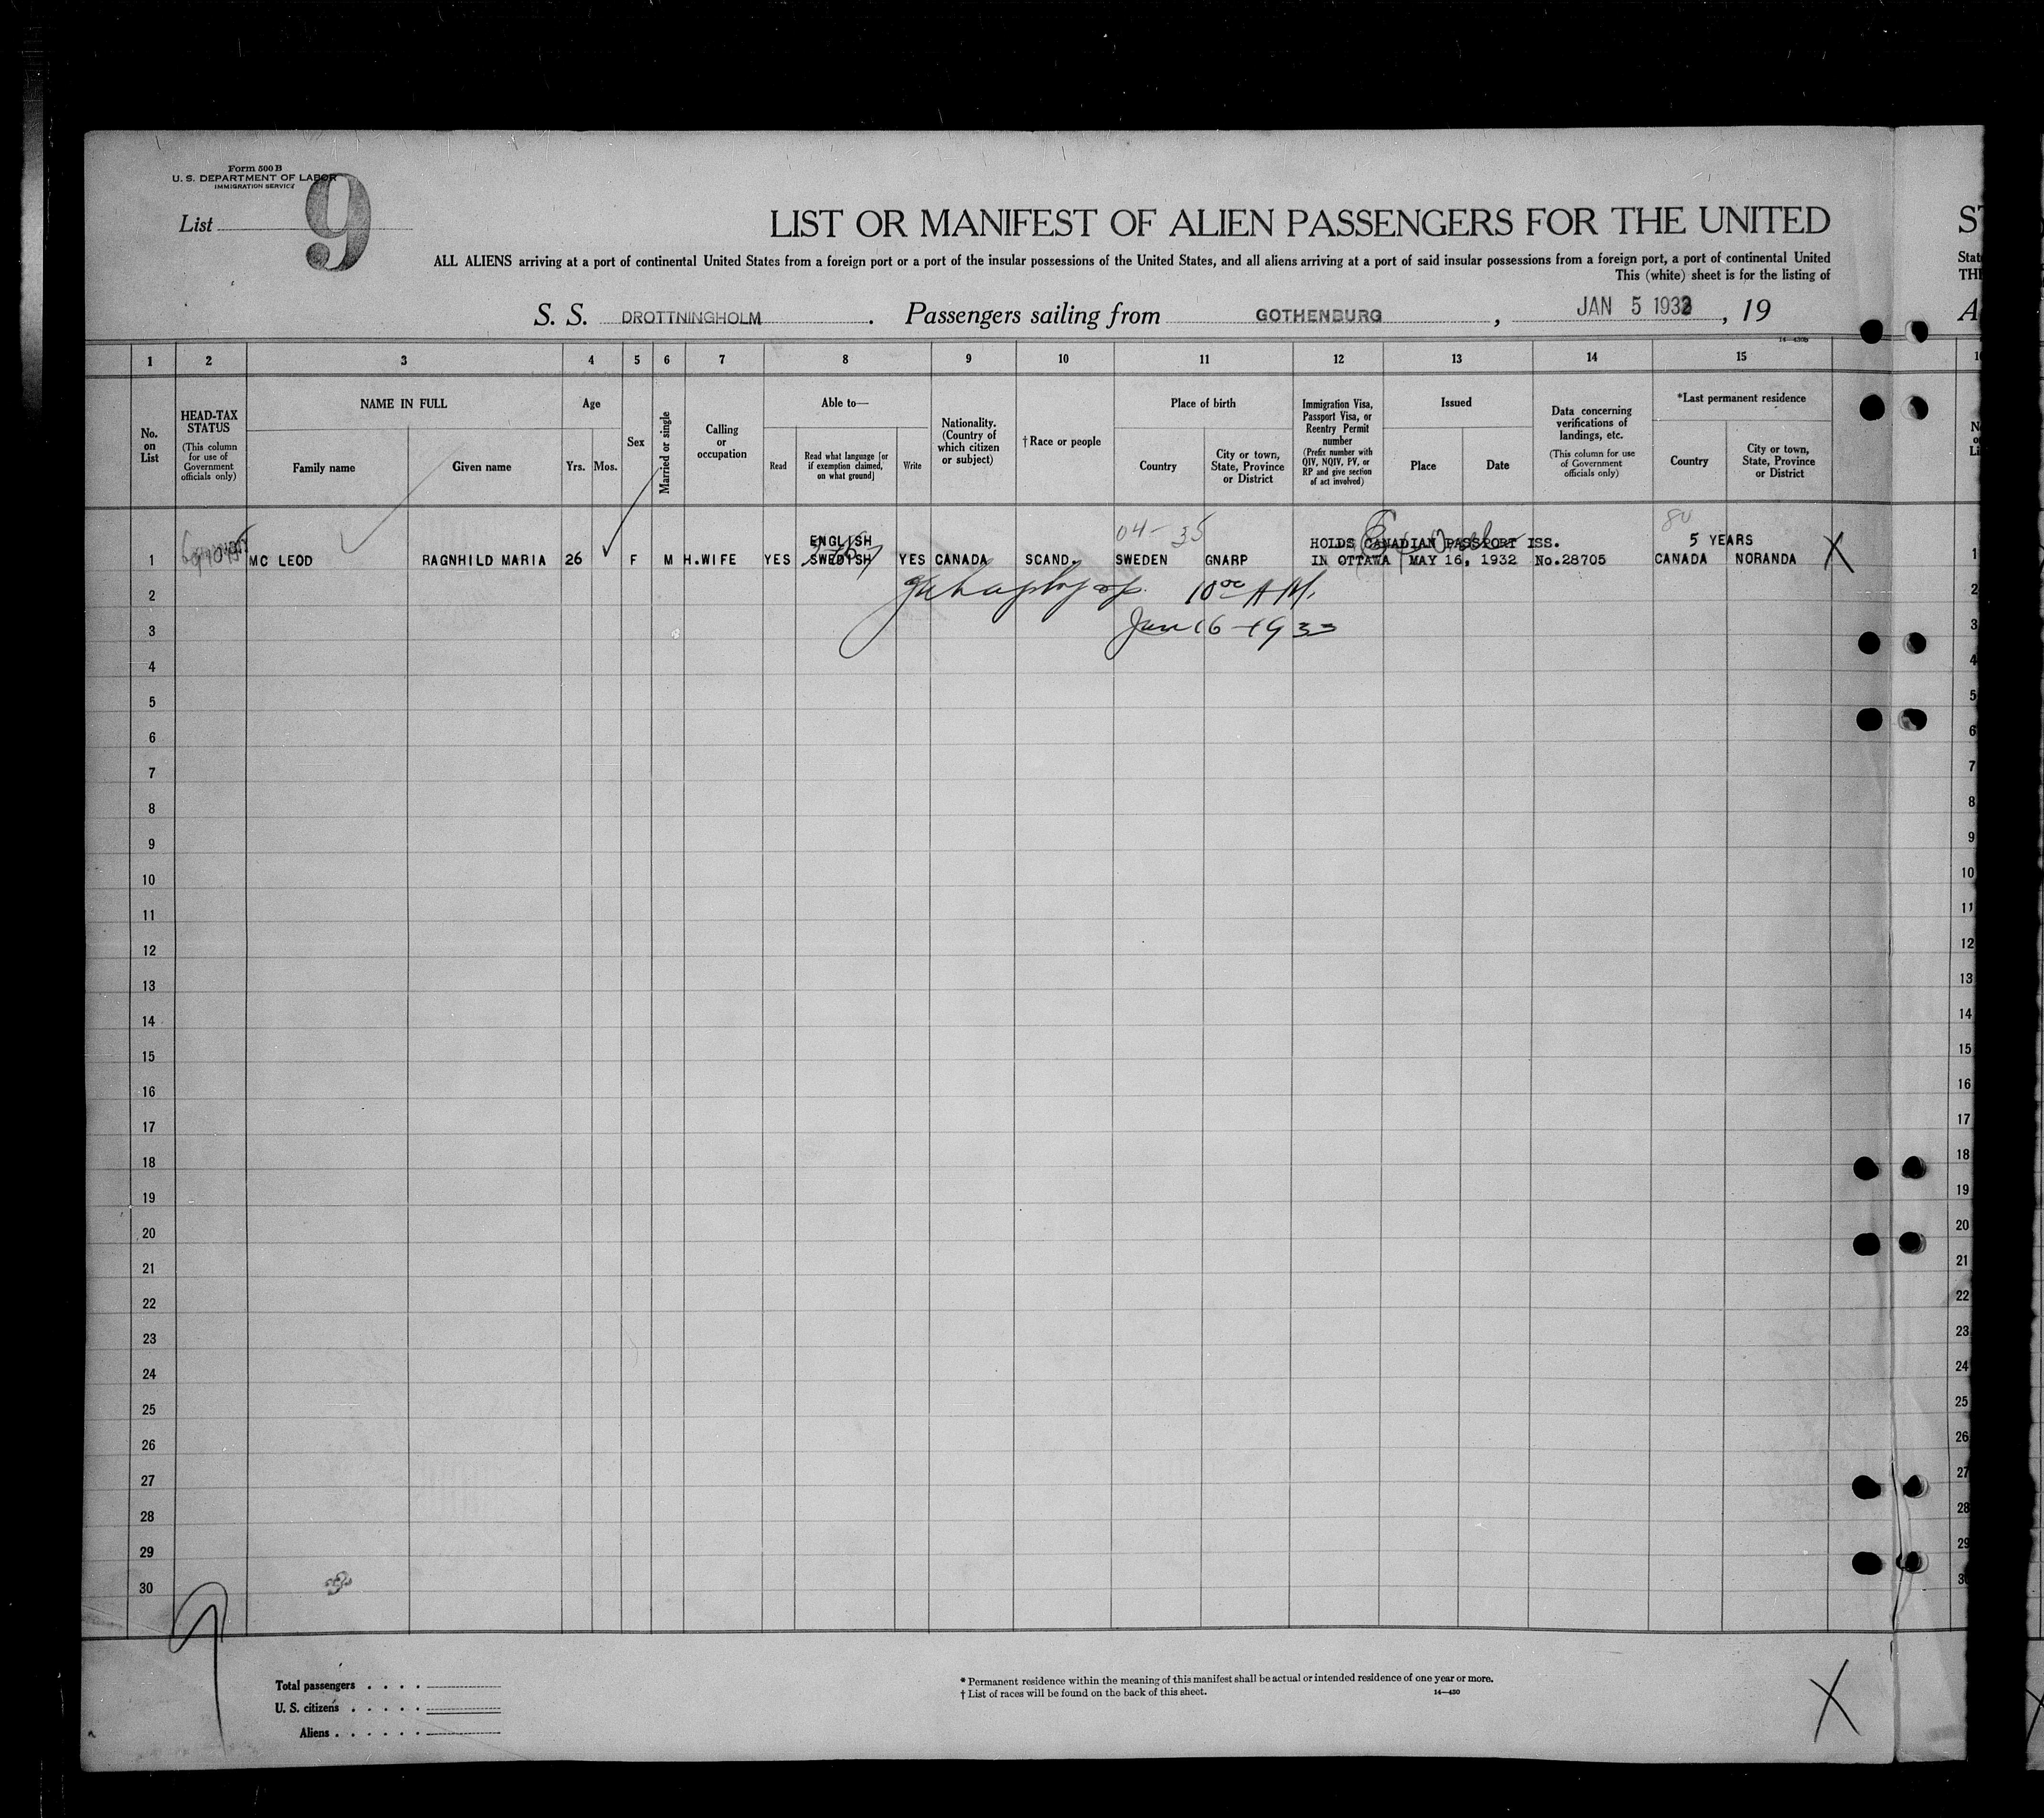 Form 500 B
U. S. DEPARTMENT OF LABOR
IMMIGRATION SERVICE
List 9
LIST OR MANIFEST OF ALIEN PASSENGERS FOR THE UNITED
ALL ALIENS arriving at a port of continental United States from a foreign port or a port of the insular possessions of the United States, and all aliens arriving at a port of said insular possessions from a foreign port, a port of continental United
This (white) sheet is for the listing of
S. S. DROTTNINGHOLM. Passengers sailing from GOTHENBURG, JAN 5 1933, 19
14—430B
1 2 3 4 5 6 7 8 9 10 11 12 13 14 15
No. on List
HEAD-TAX STATUS
(This column for use of Government officials only)
NAME IN FULL
Family name
Given name
Age
Yrs.
Mos.
Sex
Married or single
Calling or occupation
Able to—
Read
Read what language [or if exemption claimed, on what ground]
Write
Nationality. (Country of which citizen or subject)
†Race or people
Place of birth
Country
City or town, State, Province or District
Immigration Visa, Passport Visa, or Reentry Permit number
(Prefix number with QIV, NQIV, PV, or RP and give section of act involved)
Issued
Place
Date
Data concerning verifications of landings, etc.
(This column for use of Government officials only)
*Last permanent residence
Country
City or town, State, Province or District
04-35
ENGLISH
HOLDS CANADIAN PASSPORT ISS.
5 YEARS
1 MC LEOD RAGNHILD MARIA 26 F M H.WIFE YES SWEDISH YES CANADA SCAND. SWEDEN GNARP IN OTTAWA MAY 16, 1932 No.28705 CANADA NORANDA X 1
2 10 00 A M. 2
3 Jan 16 - 1933 3
4 4
5 5
6 6
7 7
8 8
9 9
10 10
11 11
12 12
13 13
14 14
15 15
16 16
17 17
18 18
19 19
20 20
21 21
22 22
23 23
24 24
25 25
26 26
27 27
28 28
29 29
30
9
Total passengers . . . .
U. S. citizens . . . . .
Aliens . . . . . .
* Permanent residence within the meaning of this manifest shall be actual or intended residence of one year or more.
† List of races will be found on the back of this sheet.
14—430
X